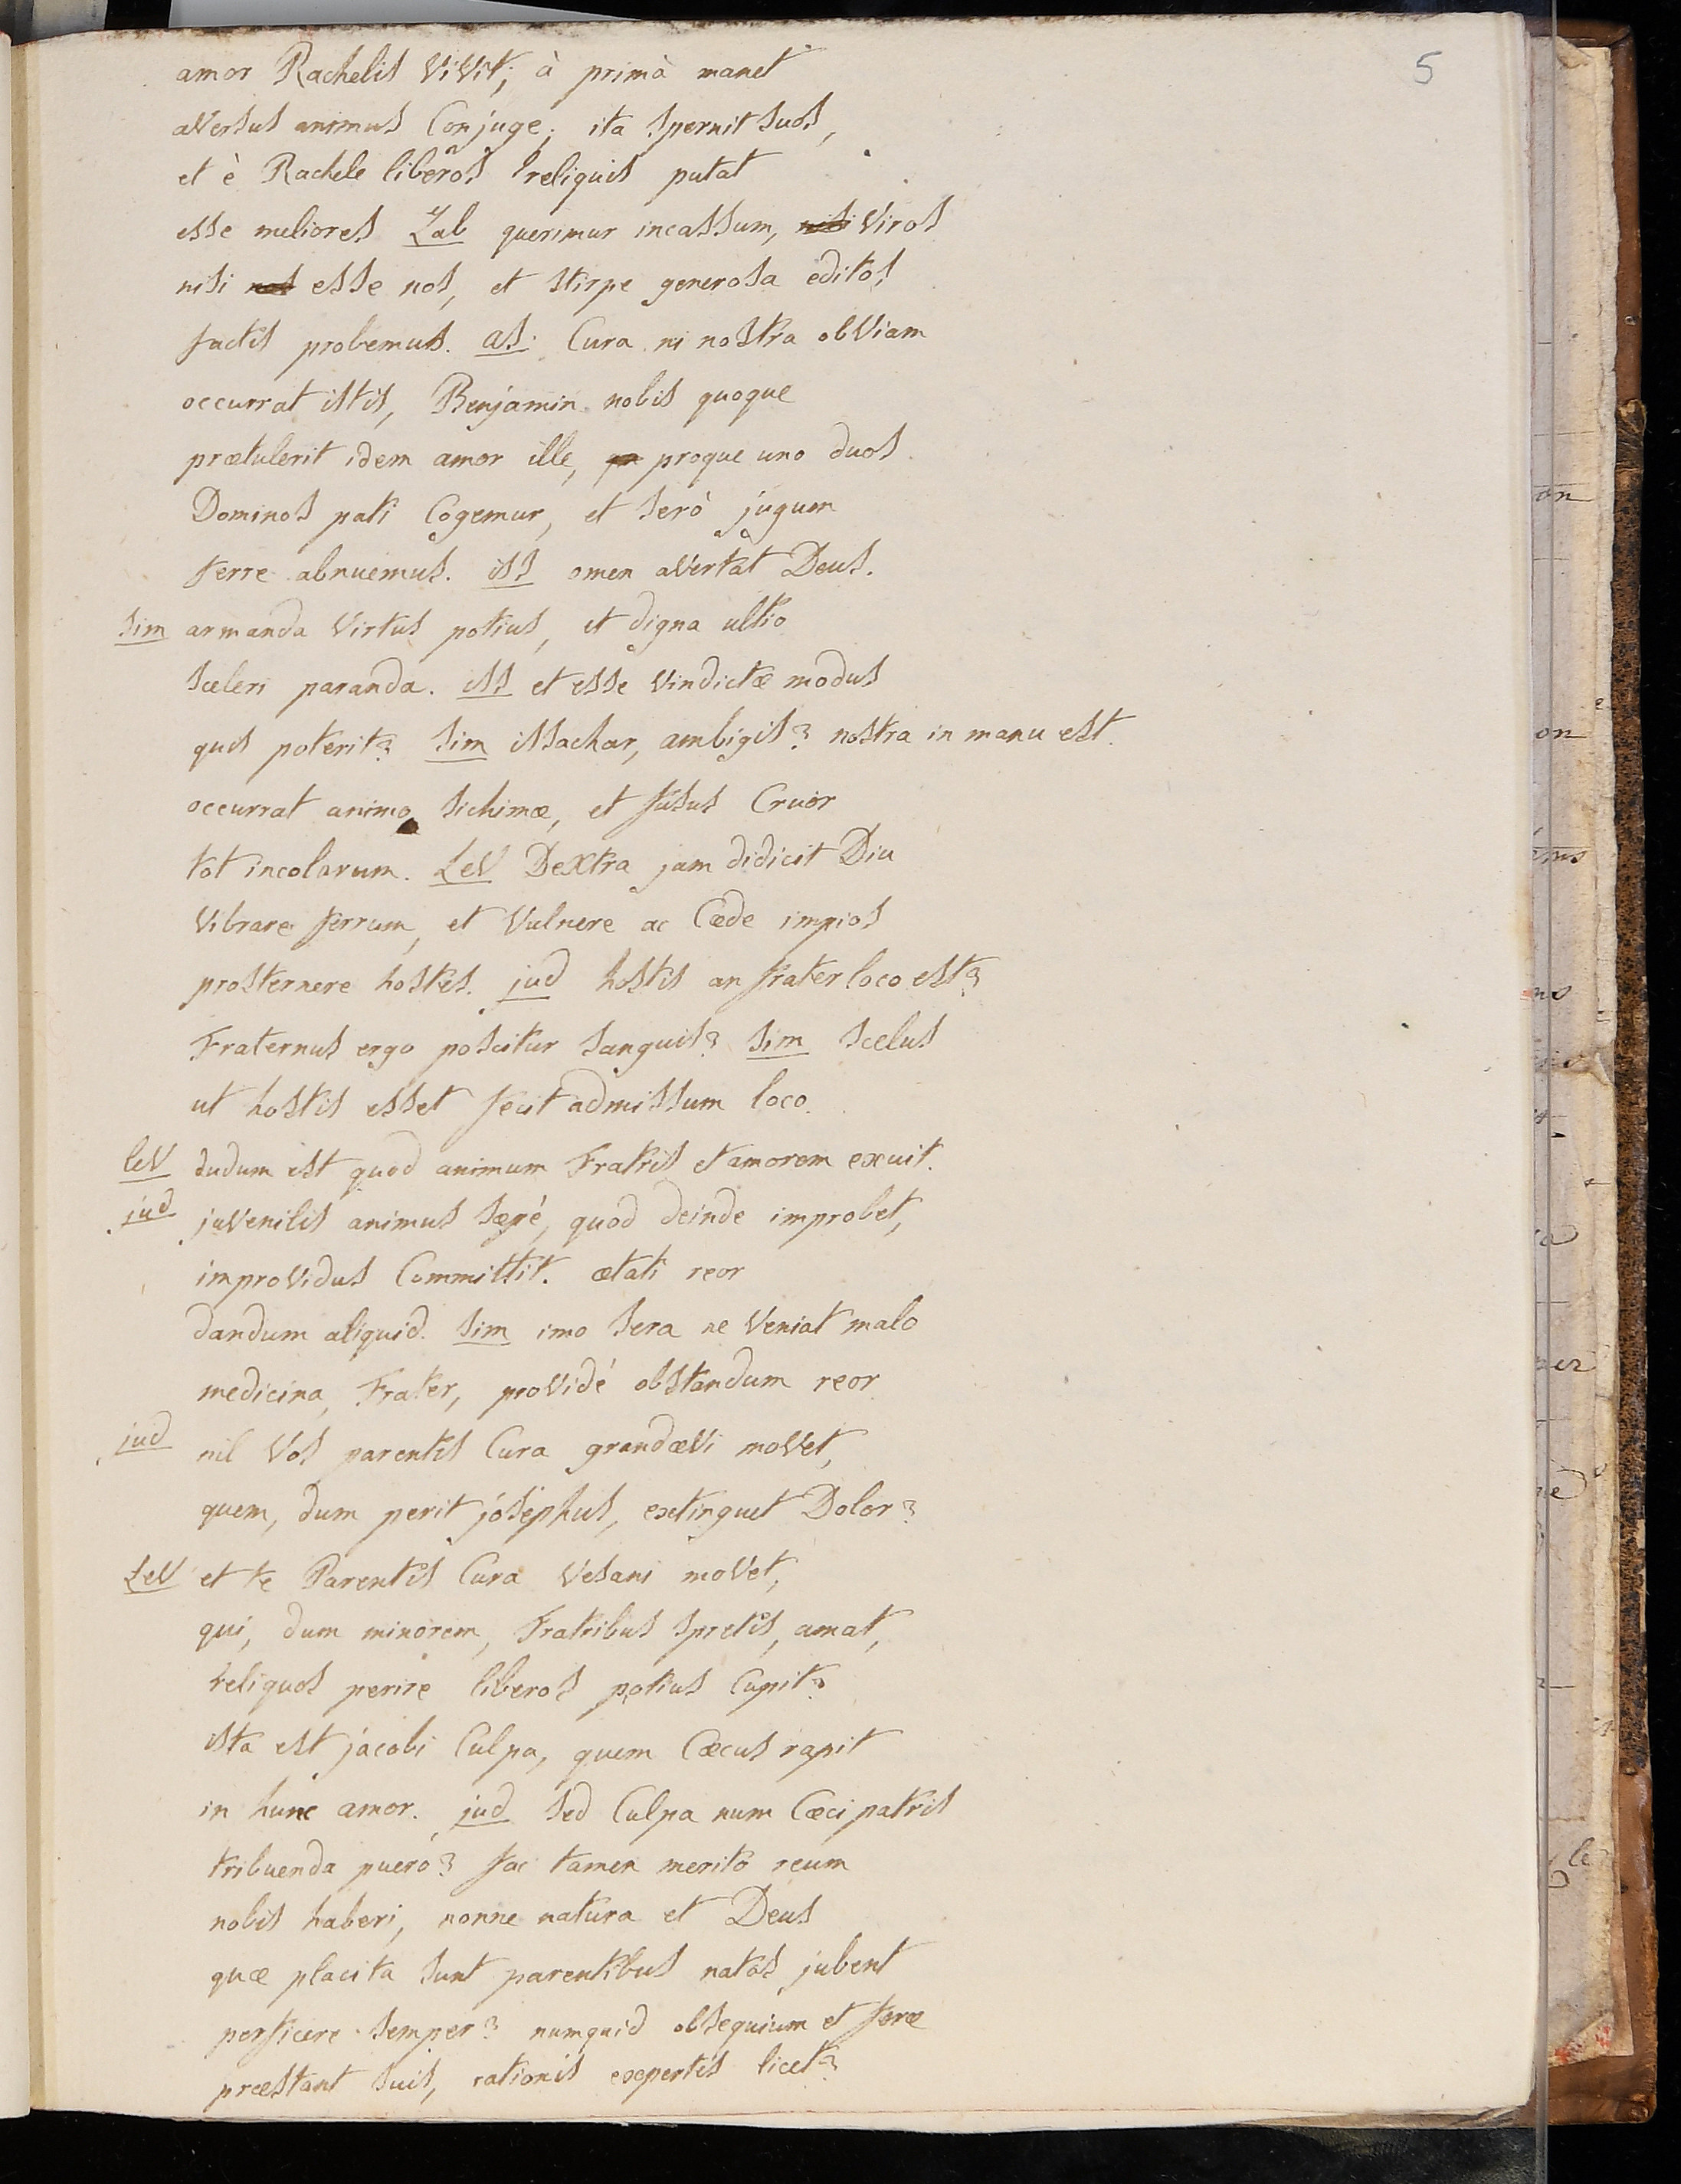 5
amor Rachelis ViVit; à primâ manet
aVersus animus Conjuge; ita spernit suos,
et è Rachele liberos reliquis putat
esse meliores Zab querimur incassum, nisi Viros
nisi nos esse nos, et stirpe generosa editos
factis probemus. as: Cura ni nostra obViam
occurrat istis, Benjamin nobis quoque
prætulerit idem amor ille, proque uno duos
Dominos pati Cogemur, et serò jugum
ferre abnuemus. iss omen aVertat Deus.
sim armanda Virtus potius, et digna ultio
sceleri paranda. iss et esse Vindictæ modus
quis poterit? sim issachar, ambigis? nostra in manu est.
occurrat animo sichimæ, et fusus Cruor
tot incolarum. LeV DeXtra jam didicit Diu
Vibrare ferrum, et Vulnere ac Cæde impios
prosternere hostes. jud hostis an frater loco est?
Fraternus ergo poscitur sanguis? sim scelus
ut hostis esset fecit admissum loco.
leV dudum est quod animum Fratris et amorem exuit.
jud juVenilis animus sæpé, quod deinde improbet,
improVidus Committit. ætati reor
dandum aliquid. sim imo sera ne Veniat malo
medicina, Frater, proVidé obstandum reor
jud nil Vos parentis Cura grandæVi moVet,
quem, dum perit josephus, extinguet Dolor?
LeV et te Parentis Cura Vesani moVet,
qui, dum minorem, Fratribus spretis, amat,
reliquos perire liberos potius Cupit?
ista est jacobi Culpa, quem Cæcus rapit
in hunc amor. jud sed Culpa num Cæci patris
tribuenda puero? fac tamen merito reum
nobis haberi, nonne natura et Deus
quæ placita sunt parentibus natos jubent
perficere semper? numquid obsequium et feræ
præstant suis, rationis expertes licet?